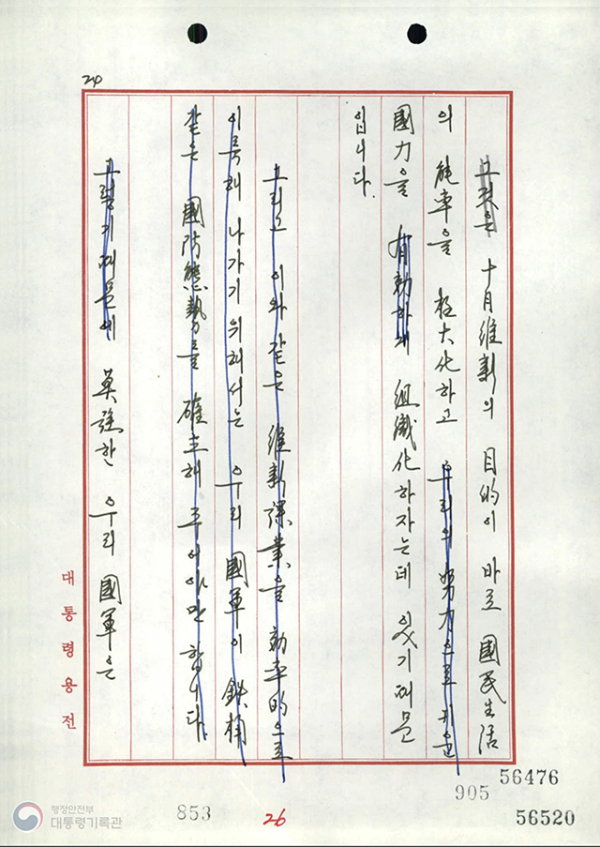 24
그것은 十月維新의 目的이 바로 國民生活
의 能率을 極大化하고 우리의 努力으로 키운
國力을 有効하게 組織化하자는데 있기 때문
입니다.
그리고 이와 같은 維新課業을 効率的으로
이룩해 나가기 위해서는 우리 國軍이 鉄桶
같은 國防態勢를 確立해 주어야만 합니다.
그렇기 때문에 莫強한 우리 國軍은
대통령용전
56476
905
853
26
56520
행정안전부
대통령기록관